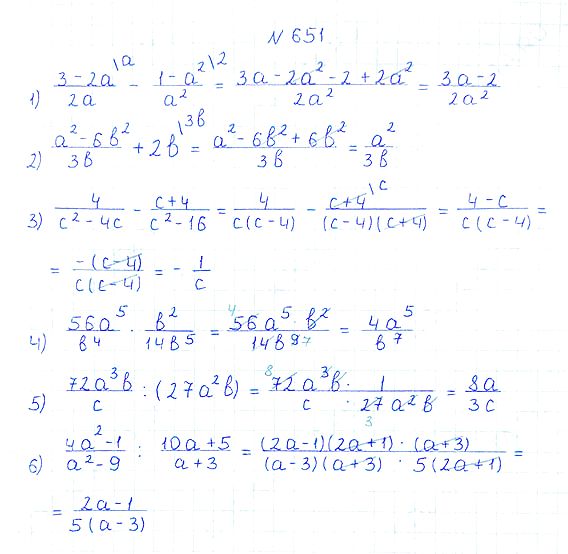 N 651
1) \frac{3-2a^{\backslash a}}{2a} - \frac{1-a^{2 \backslash 2}}{a^2} = \frac{3a-2a^2-2+2a^2}{2a^2} = \frac{3a-2}{2a^2}
2) \frac{a^2-6b^2}{3b} + 2b^{\backslash 3b} = \frac{a^2-6b^2+6b^2}{3b} = \frac{a^2}{3b}
3) \frac{4}{c^2-4c} - \frac{c+4}{c^2-16} = \frac{4}{c(c-4)} - \frac{c+4^{\backslash c}}{(c-4)(c+4)} = \frac{4-c}{c(c-4)} =
= \frac{-(c-4)}{c(c-4)} = -\frac{1}{c}
4) \frac{56a^5}{b^4} \cdot \frac{b^2}{14b^5} = \frac{^4 56a^5 \cdot b^2}{14b^{9 7}} = \frac{4a^5}{b^7}
5) \frac{72a^3b}{c} : (27a^2b) = \frac{^8 72a^3b \cdot 1}{c \cdot 27_3 a^2b} = \frac{8a}{3c}
6) \frac{4a^2-1}{a^2-9} : \frac{10a+5}{a+3} = \frac{(2a-1)(2a+1) \cdot (a+3)}{(a-3)(a+3) \cdot 5(2a+1)} =
= \frac{2a-1}{5(a-3)}